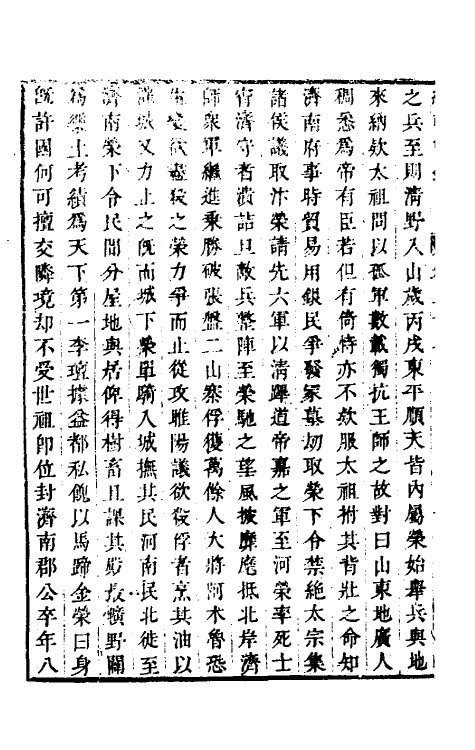 之兵至則清野入山歲丙戌東平順天皆內屬榮始舉兵與地
來納欵太祖問以孤軍數載獨抗王師之故對曰山東地廣人
稠悉為帝有臣若但有倚恃亦不欵服太祖拊其背壯之命知
濟南府事時貿易用鈔民爭發冢墓刼取榮下令禁絕太宗集
諸侯議取汴榮請先六軍以清蹕道帝嘉之軍至河榮率死士
宵濟守者潰詰旦敵兵整陣至榮馳之望風披靡麾抵北岸濟
師衆軍繼進乘勝破張盤二山寨俘獲萬餘人大將阿木魯恐
生變欲盡殺之榮力爭而止從攻睢陽議欲殺俘者烹其油以
灌城又力止之既而城下榮單騎入城撫其民河南民北徙至
濟南榮下令民間分屋地與居俾得樹畜且課其殿最曠野闢
為樂土考績為天下第一李璮據益都私餽以馬蹄金榮曰身
既許國何可擅交隣境却不受世祖即位封濟南郡公卒年八